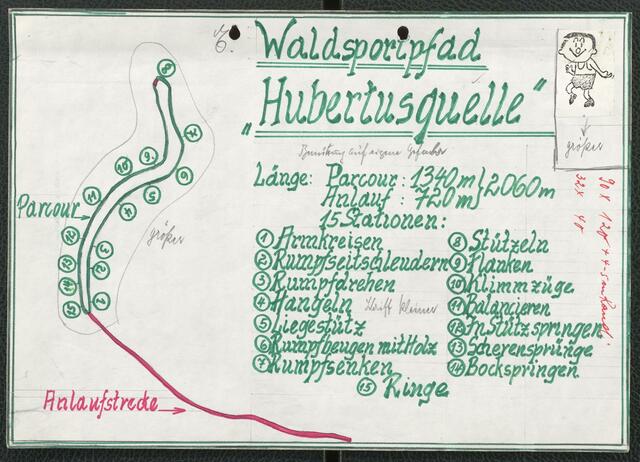 Waldsportpfad
„Hubertusquelle“
Benützung auf eigene Gefahr
größer
Länge: Parcour: 1340m } 2060m
Anlauf: 720m
15 Stationen:
1 Armkreisen
2 Rumpfseitschleudern
3 Rumpfdrehen
4 Hangeln
Schrift kleiner
5 Liegestütz
6 Rumpfbeugen mit Holz
7 Rumpfsenken
8 Stützeln
9 Flanken
10 Klimmzüge
11 Balancieren
12 In Stütz springen
13 Scherensprünge
14 Bockspringen
15 Ringe
Parcour
größer
Anlaufstrecke
8
7
9
10
6
5
11
4
12
3
13
2
14
1
15
90 x 120 + 4-5 cm Rand!